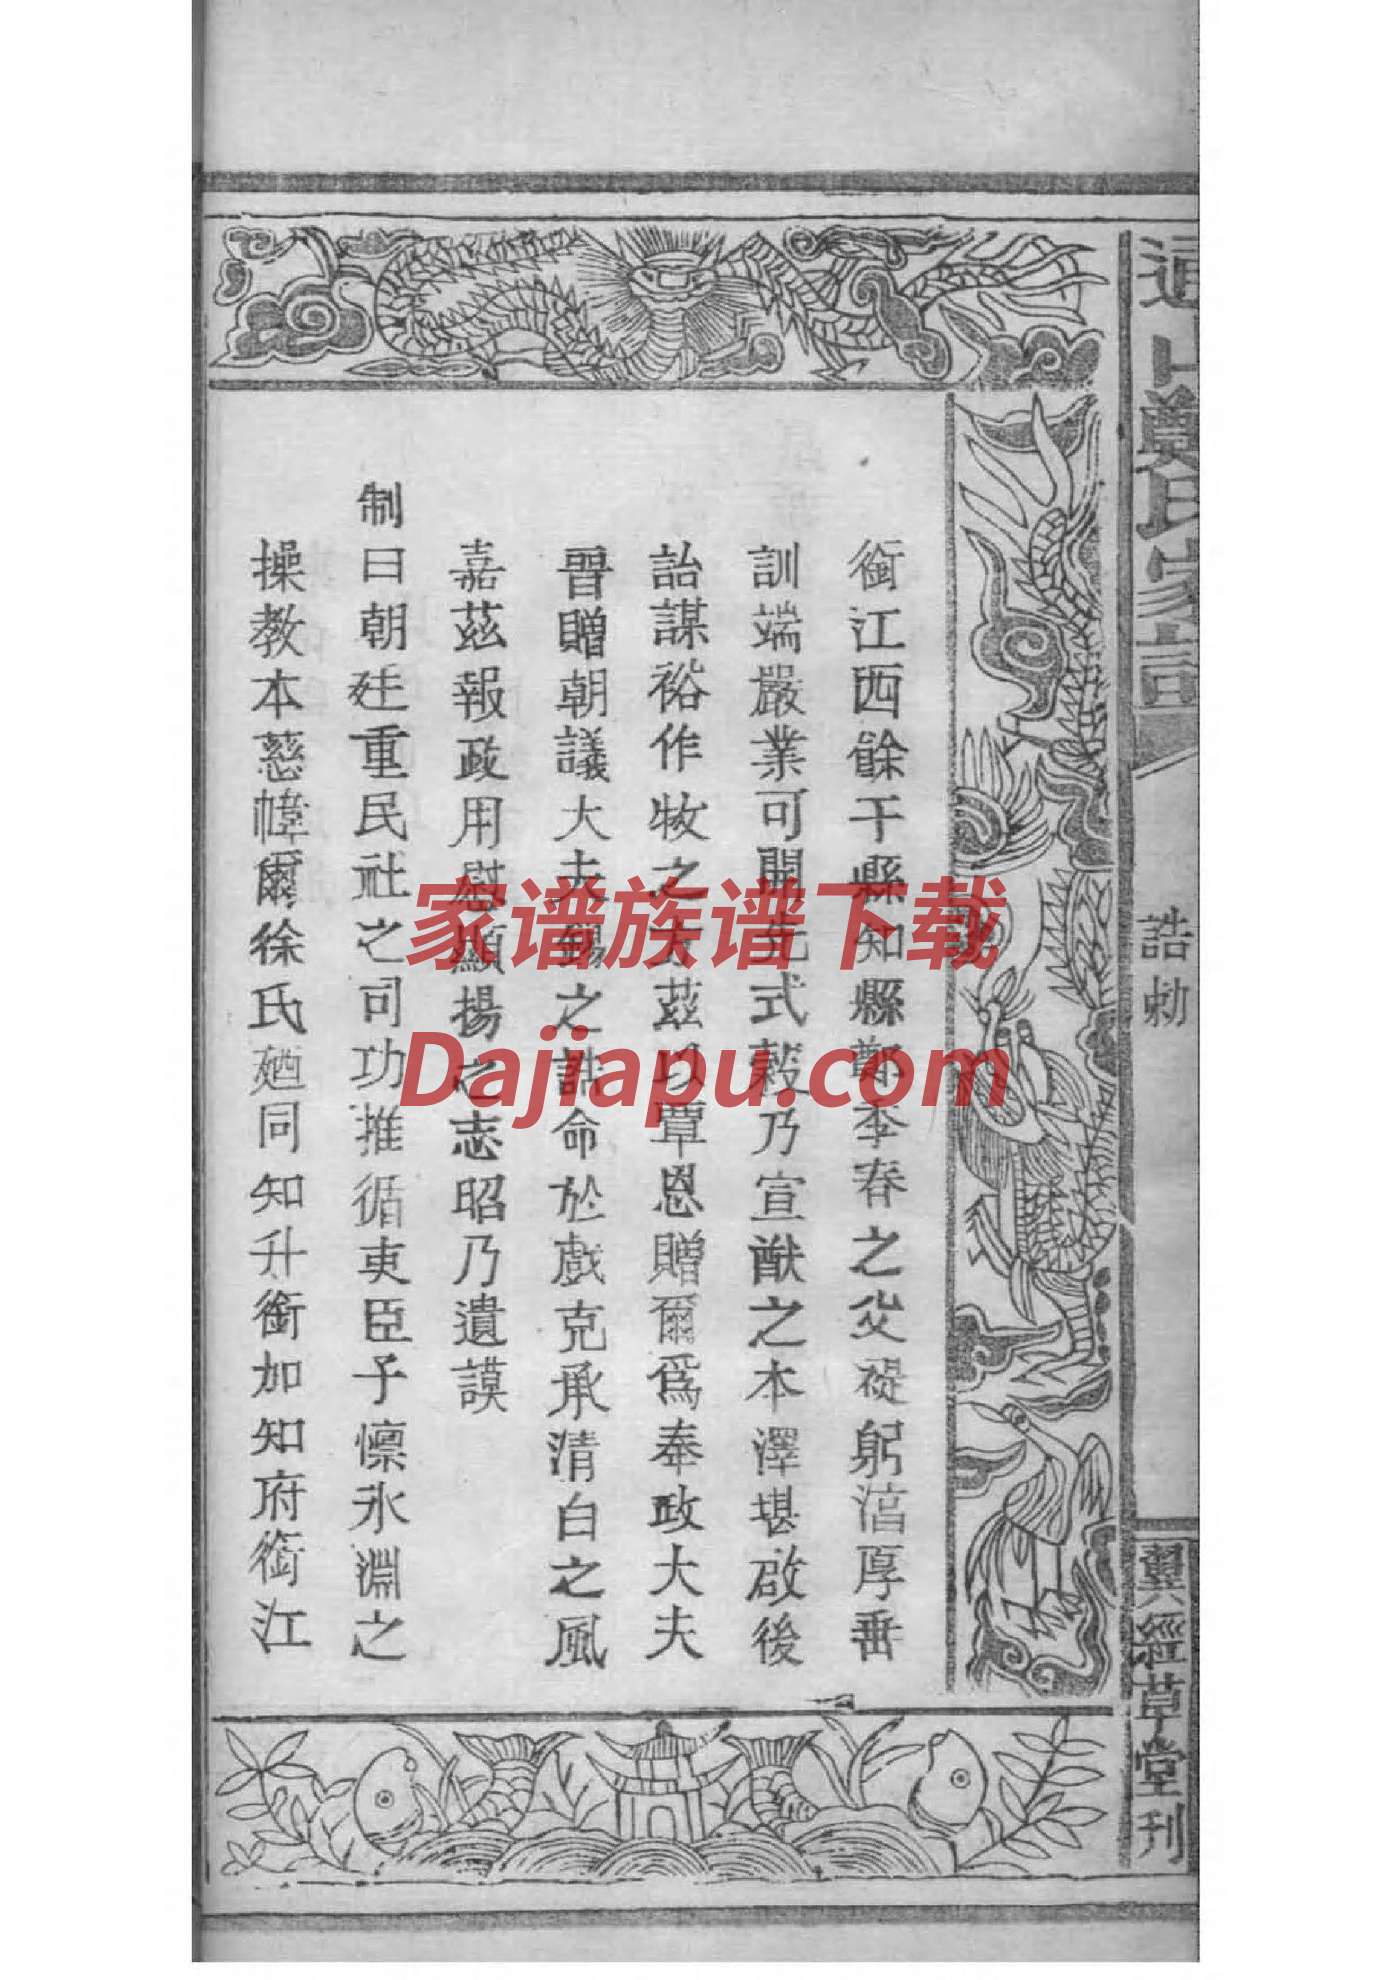 通山鄭氏家譜
誥勅
翼經草堂刊
銜江西餘干縣知縣鄭季春之父褆躬湻厚垂
訓端嚴業可開先式穀乃宣猷之本澤堪啟後
詒謀裕作牧之方茲以覃恩贈爾爲奉政大夫
晉贈朝議大夫錫之誥命於戲克承清白之風
嘉茲報政用慰顯揚之志昭乃遺謨
制曰朝廷重民社之司功推循吏臣子懔氷淵之
操教本慈幃爾徐氏廼同知升銜加知府銜江
家谱族谱下载
Dajiapu.com